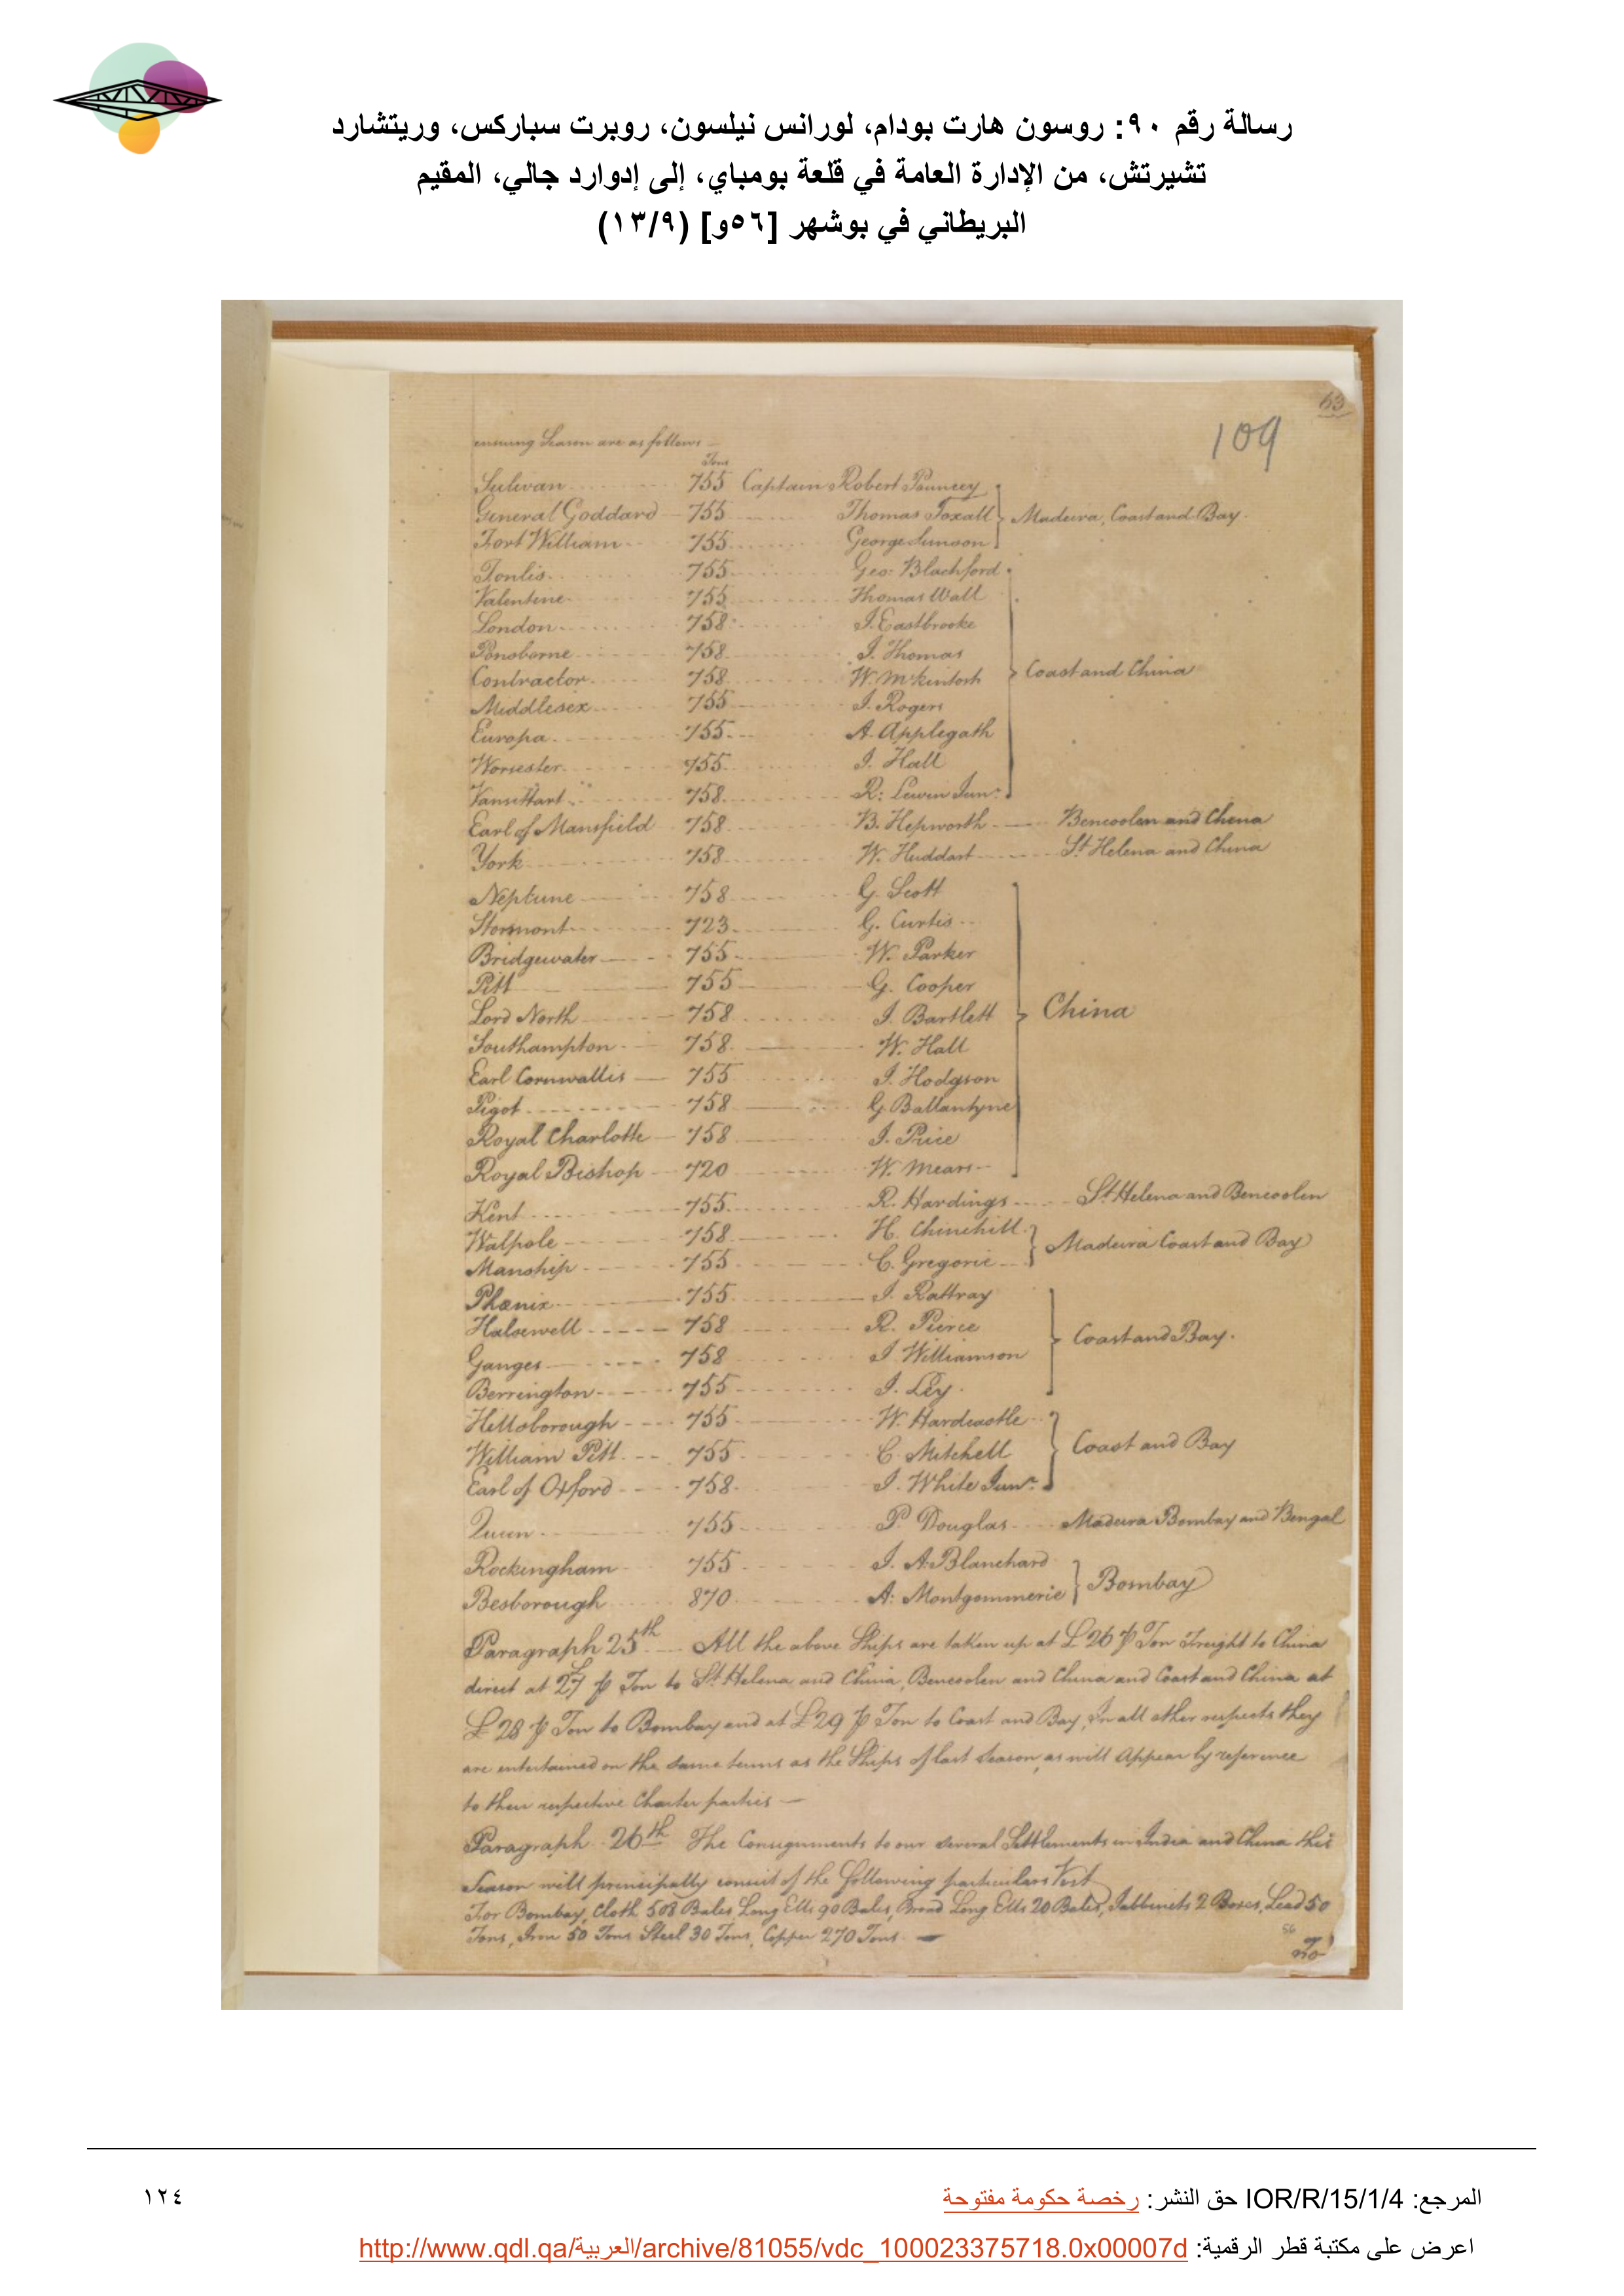 رسالة رقم ٩٠: روسون هارت بودام، لورانس نيلسون، روبرت سباركس، وريتشارد
تشيرتش، من الإدارة العامة في قلعة بومباي، إلى إدوارد جالي، المقيم
البريطاني في بوشهر [٥٦و] (١٣/٩)
63
109
ensuing Season are as follows
Tons
Sulivan 755 Captain Robert Pouncey
General Goddard 755 Thomas Foxall } Madeira, Coast and Bay.
Fort William 755 George Simson
755 Geo: Blachford
Valentine 755 Thomas Wall
London 758 I. Eastbrooke
Ponsborne 758 I. Thomas
Contractor 758 W. McKintosh } Coast and China
Middlesex 755 I. Rogers
Europa 755 A. Applegath
Worsester 755 I. Hall
Vansittart 758 R: Lewin Junr.
Earl of Mansfield 758 B. Hepworth Bencoolen and China
York 758 W. Huddart St. Helena and China
Neptune 758 G. Scott
Stormont 723 G. Curtis
Bridgewater 755 W. Parker
Pitt 755 G. Cooper
Lord North 758 I. Bartlett } China
Southampton 758 W. Hall
Earl Cornwallis 755 I. Hodgson
Pigot 758 G. Ballantyne
Royal Charlotte 758 I. Price
Royal Bishop 720 W. Mears
Kent 755 R. Hardings St. Helena and Bencoolen
Walpole 758 H. Chinchill } Madeira Coast and Bay
Manship 755 C. Gregorie
Phœnix 755 I. Rattray
Halsewell 758 R. Pierce } Coast and Bay.
Ganges 758 I. Williamson
Berrington 755 I. Ley
Hillsborough 755 W. Hardcastle
William Pitt 755 C. Mitchell } Coast and Bay
Earl of Oxford 758 I. White Junr.
Queen 755 P. Douglas Madeira Bombay and Bengal
Rockingham 755 I. A. Blanchard } Bombay
Besborough 870 A: Montgommerie
Paragraph 25th All the above Ships are taken up at £26 ⅌ Ton Freight to China
direct at £27 ⅌ Ton to St. Helena and China, Bencoolen and China and Coast and China at
£28 ⅌ Ton to Bombay and at £29 ⅌ Ton to Coast and Bay, In all other respects they
are entertained on the same terms as the Ships of last Season, as will Appear by reference
to their respective Charter parties —
Paragraph 26th The Consignments to our several Settlements in India and China this
Season will principally consist of the following particulars Vizt
For Bombay, Cloth 508 Bales, Long Ells 90 Bales, Broad Long Ells 20 Bales, Tabbinets 2 Boxes, Lead 50
Tons, Iron 50 Tons Steel 30 Tons, Copper 270 Tons —
56
To
المرجع: IOR/R/15/1/4 حق النشر: رخصة حكومة مفتوحة
١٢٤
اعرض على مكتبة قطر الرقمية: http://www.qdl.qa/العربية/archive/81055/vdc_100023375718.0x00007d